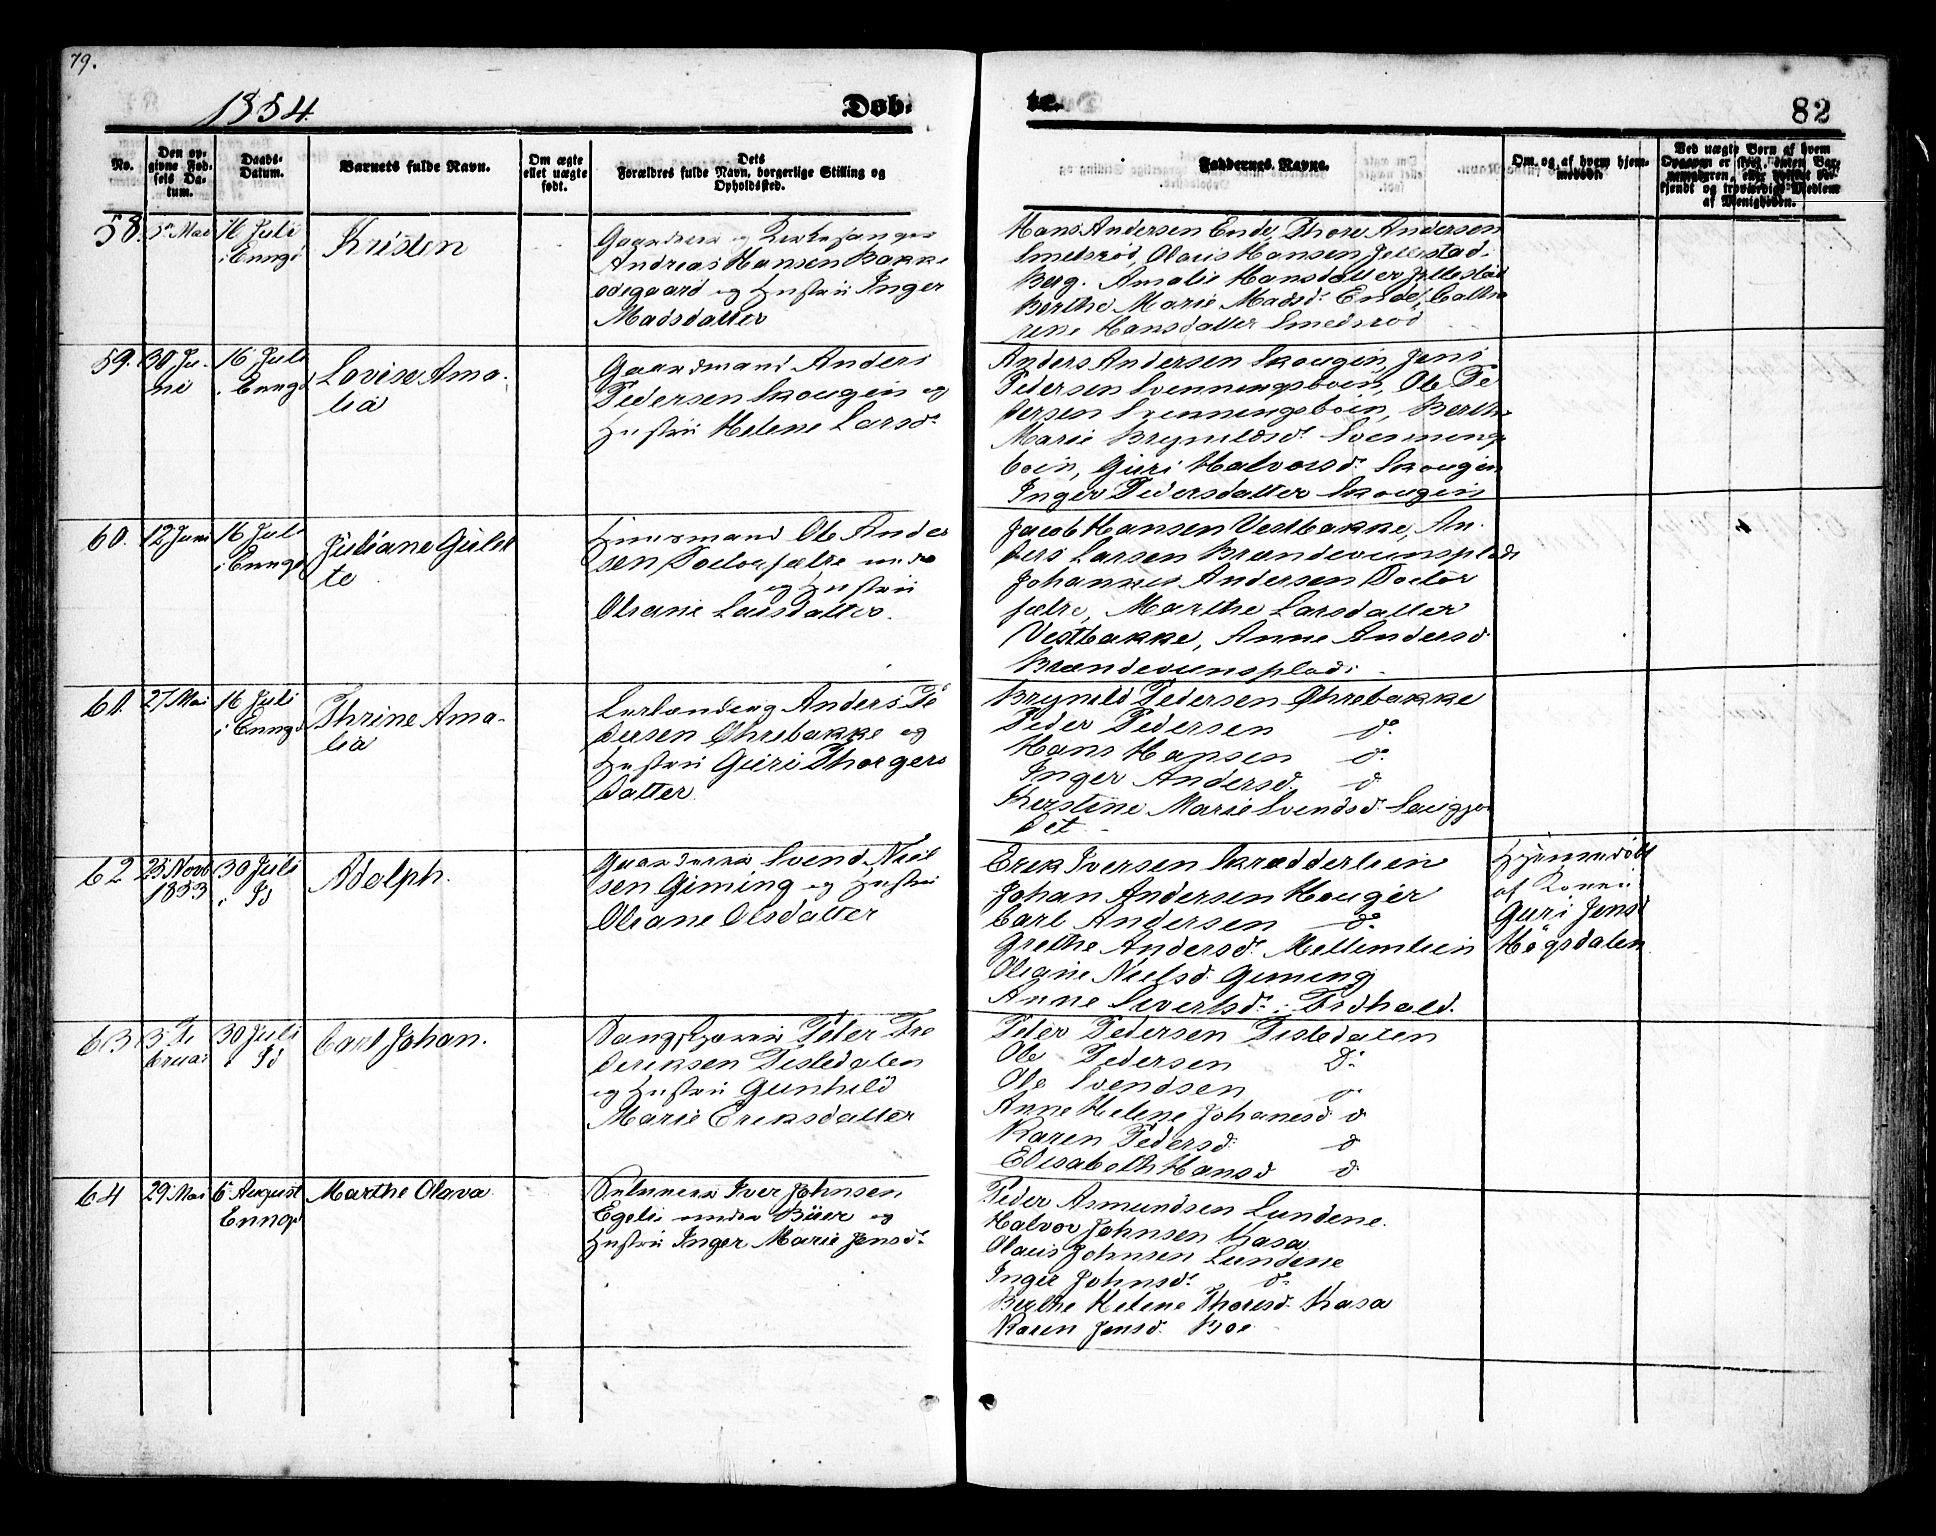 79.
1854.
Døb-
te.
82
No.
Den op-
givne Fød-
sels Da-
tum.
Daabs-
Datum.
Barnets fulde Navn.
Om ægte
ellet uægte
født.
Dets
Forældres fulde Navn, borgerlige Stilling og
Opholdssted.
Faddernes Navne.
Om og af hvem hjem-
medøbt.
Ved uægte Børn af hvem
Opgaven er skeet, enten Bar-
nemoderen, eller hvilket be-
kjendt og troværdigt Medlem
af Menigheden.
58.
Mai
16 Juli
i Enngd
Kristen
Gaardmand og Kirkesanger
Andreas Hansen Bakke
ødegaard og Hustru Inger
Madsdatter
Hans Andersen Ende, Thore Andersen
Smedsrød, Olaus Hansen Jellestad
Berg. Amalie Hansdatter Jellestad
Birthe Marie Madsd: Ende, Cath
rine Hansdatter Smedsrød
59.
30 Ju-
ni
16 Juli
i Enngd
Lovise Ama-
lia
Gaardmand Anders
Pedersen Skougen og
Hustru Helene Larsd:
Anders Andersen Skougen, Jens
Pedersen Svenningsboen, Ole Pe
dersen Svenningsboin, Berthe
Marie Brynildsd: Svennings
boin, Guri Halvorsd: Skougen
Inger Pedersdatter Skougen
60.
12 Juni
16 Juli
i Enngd
Juliane Gulet
te
Huusmand Ole Ander
sen Doctorfæltre under
og Hustru
Oleane Larsdatter.
Jacob Hansen Vestbakke, An-
ders Larsen Brændevunsplads
Johannes Andersen Doctor
fæltre, Marthe Larsdatter
Vestbakke, Anne Andersd:
Brændevunsplads
61.
27 Mai
16 Juli
i Enngd
Thrine Ama-
lia
Leilænding Anders Pe
dersen Ohrebakke og
Hustru Guri Thorgers
datter
Brynild Pedersen Ohrebakke
Peder Pedersen do
Hans Hansen do
Inger Andersd. do
Kerstine Marie Svendsd:
det
62
25 Novb
1853
30 Juli
i Id
Adolph.
Gaardmand Svend Niel
sen Giming og Hustru
Oleane Olsdatter
Erik Iversen Skrædderlien
Johan Andersen Houger
Carl Andersen do
Grethe Andersd: Mellemlien
Oleane Nielsd: Giming
Anne Sivertsd: i Tidhald.
Hjemmedøbt
af Konen
Guri Jensd
Høgsdalen
63
3 Fe
bruar
30 Juli
i Id
Carl Johan.
Peter Fre
deriksen Tistedalen
og Hustru Gunhild
Marie Eriksdatter
Peder Pedersen Tistedalen
Ole Pedersen do
Ole Svendsen do
Anne Helene Johanesd do
Karen Pedersd: do
Elisabeth Hansd do
64
29 Mai
6 August
Enngd
Marthe Olava
Iver Johnsen
Egelis under Büer og
Hustru Inger Marie Jensd:
Peder Asmundsen Lundene.
Halvor Johnsen Kasa
Olaus Johnsen Lundene
Inger Johnsd: do
Berthe Helene Thoresd: Kasa
Karen Jensd. Boe